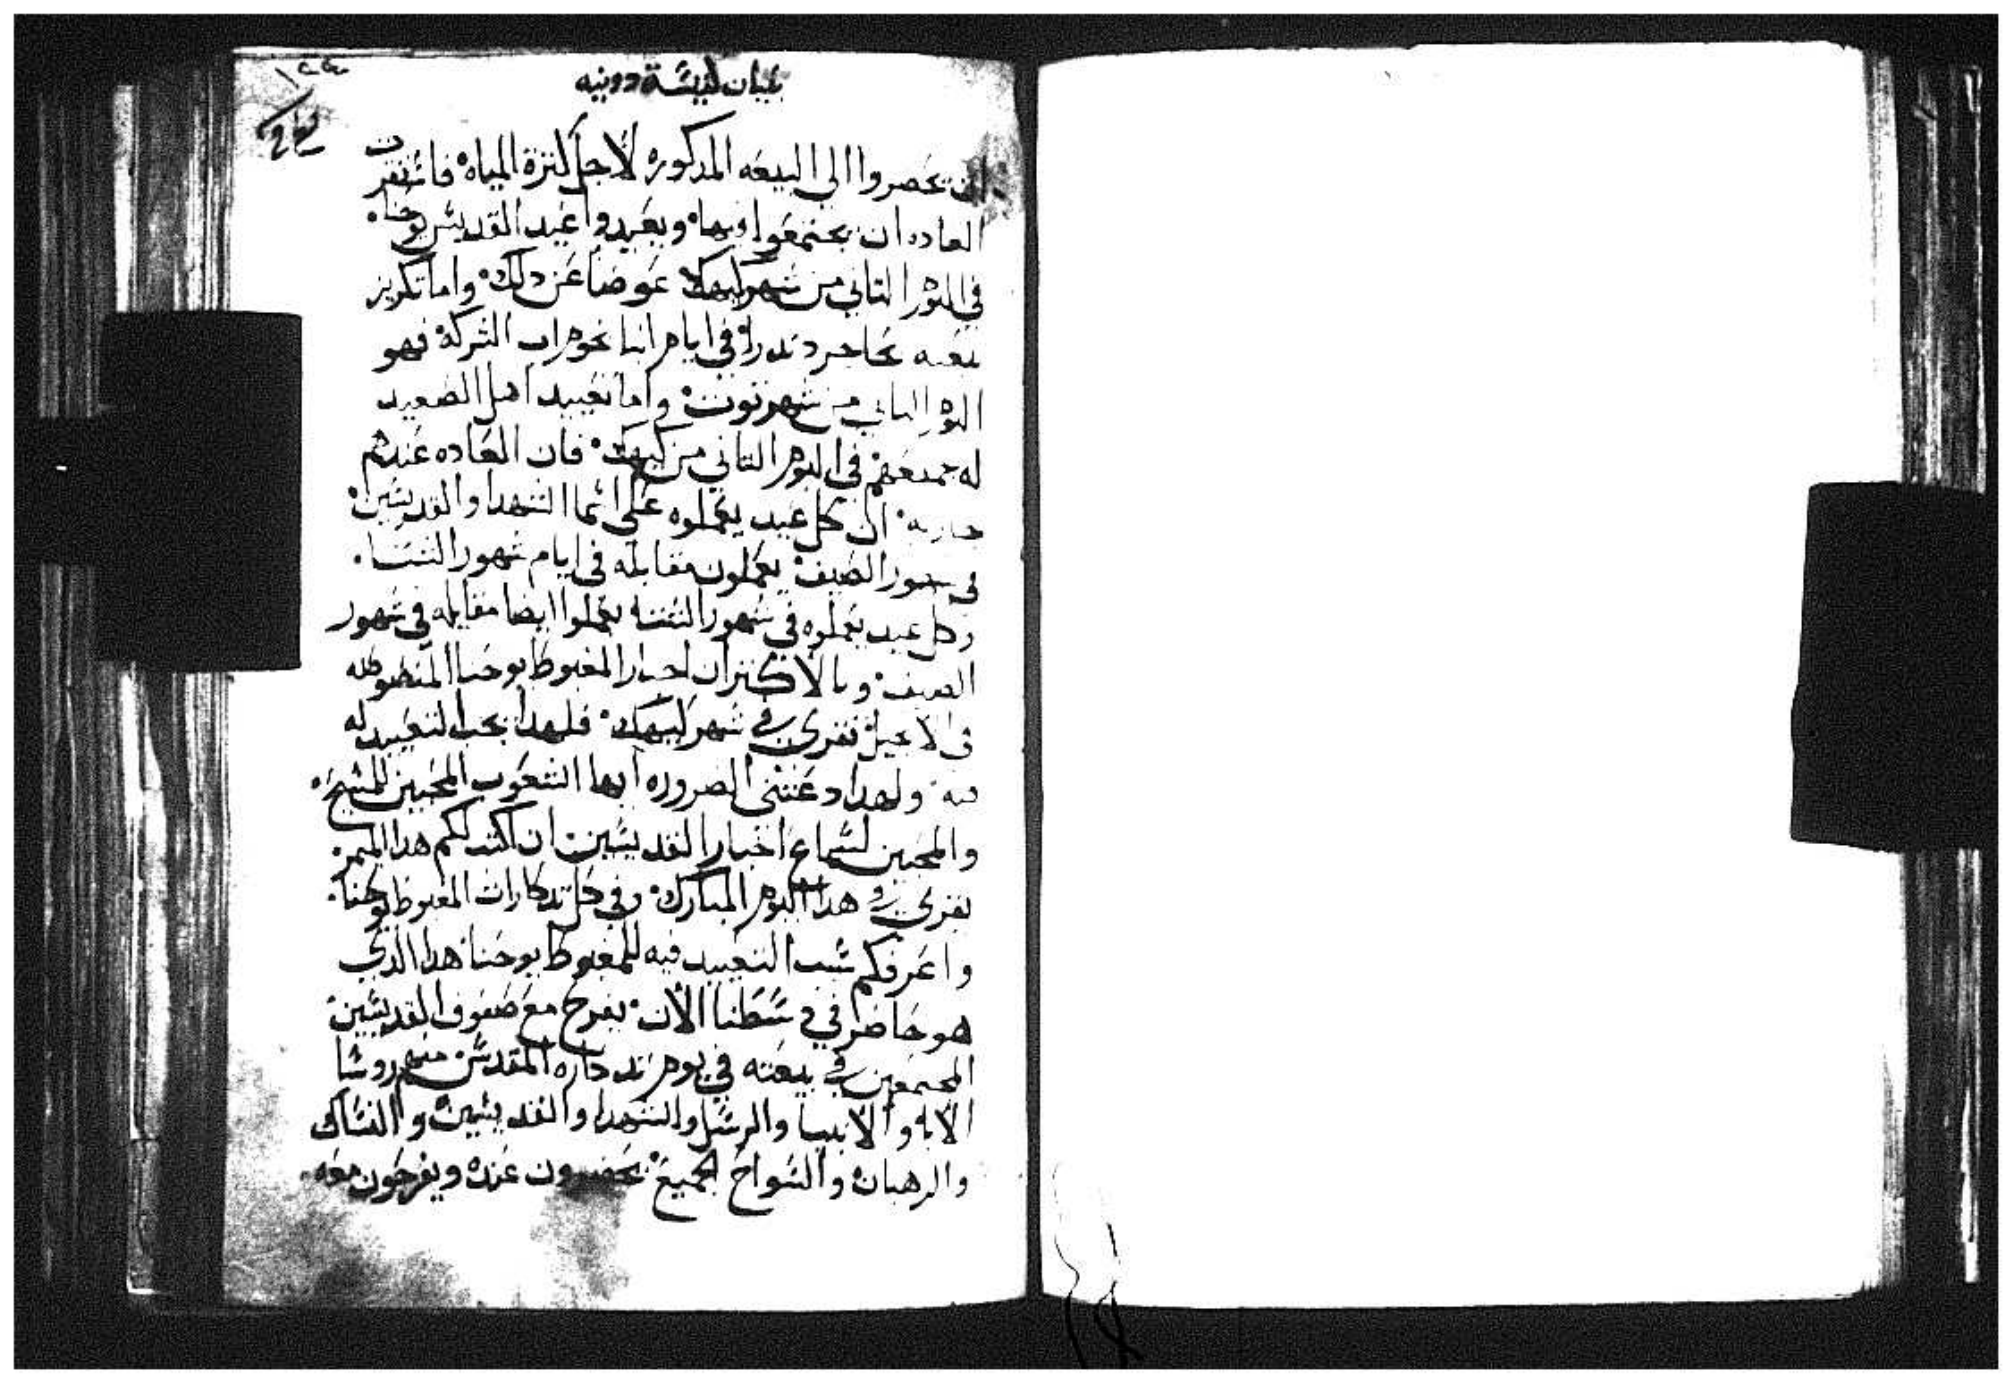 ١٢٤
ان يحضروا الى البيعه المدكوره لاجل كترة المياه فاستقرت
العاده ان يجتمعوا فيها ويعيدوا عيد القديس يوحنا
في اليوم التاني من شهر كيهك عوضا عن دلك واما تكريز
بيعته في ايام انبا فهو
اليوم التاني من شهر توت واما تعييد اهل الصعيد
له جميعهم في اليوم التاني من كيهك فان العاده عندهم
جاريه ان كل عيد يعملوه على اسما الشهدا والقديسين
في شهور الصيف يعملون مقابله في ايام شهور الشتا
وكل عيد يعملوه في شهور الشتا يعملوا ايضا مقابله في شهور
الصيف وبالاكتر ان اخبار المغبوط يوحنا
في الانجيل تقرى في شهر كيهك فلهدا يجب التعييد له
فيه ولهدا دعتني الضروره ايها الشعوب المحبين للمسيح
والمحبين لسماع اخبار القديسين ان اكتب لكم هدا الميمر
يقرى في هدا اليوم المبارك وفي كل تدكارات المغبوط يوحنا
واعرفكم سبب التعييد فيه للمغبوط يوحنا هدا الدي
هو حاضر في وسطنا الان يفرح مع صفوف القديسين
المجتمعين في بيعته في يوم تدكاره المقدس منهم روسا
الابا والانبيا والرسل والشهدا والقديسين والنساك
والرهبان والسواح الجميع يحضرون عنده ويفرحون معه